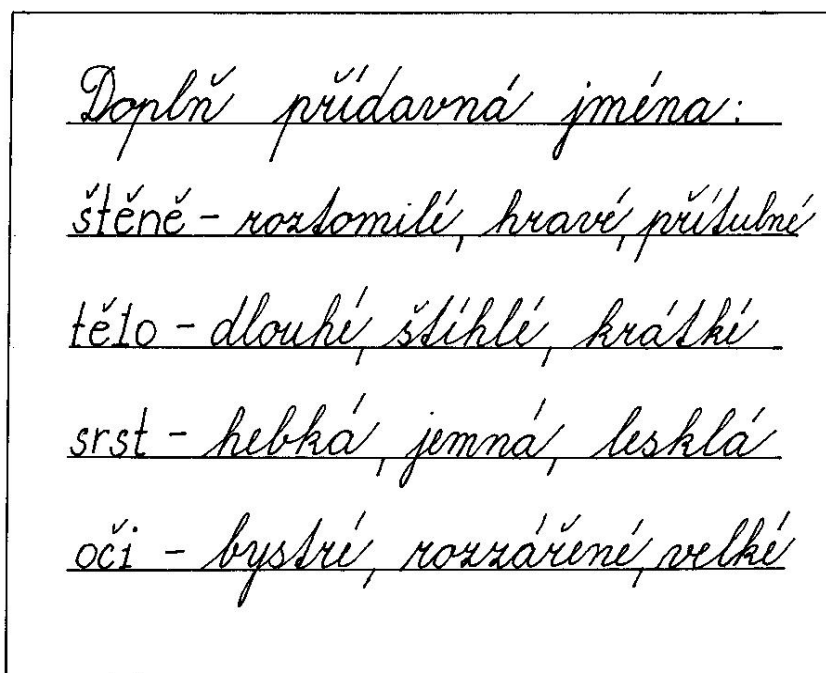 Doplň přídavná jména:
štěně - roztomilé, hravé, přítulné
tělo - dlouhé, štíhlé, krátké
srst - hebká, jemná, lesklá
oči - bystré, rozzářené, velké